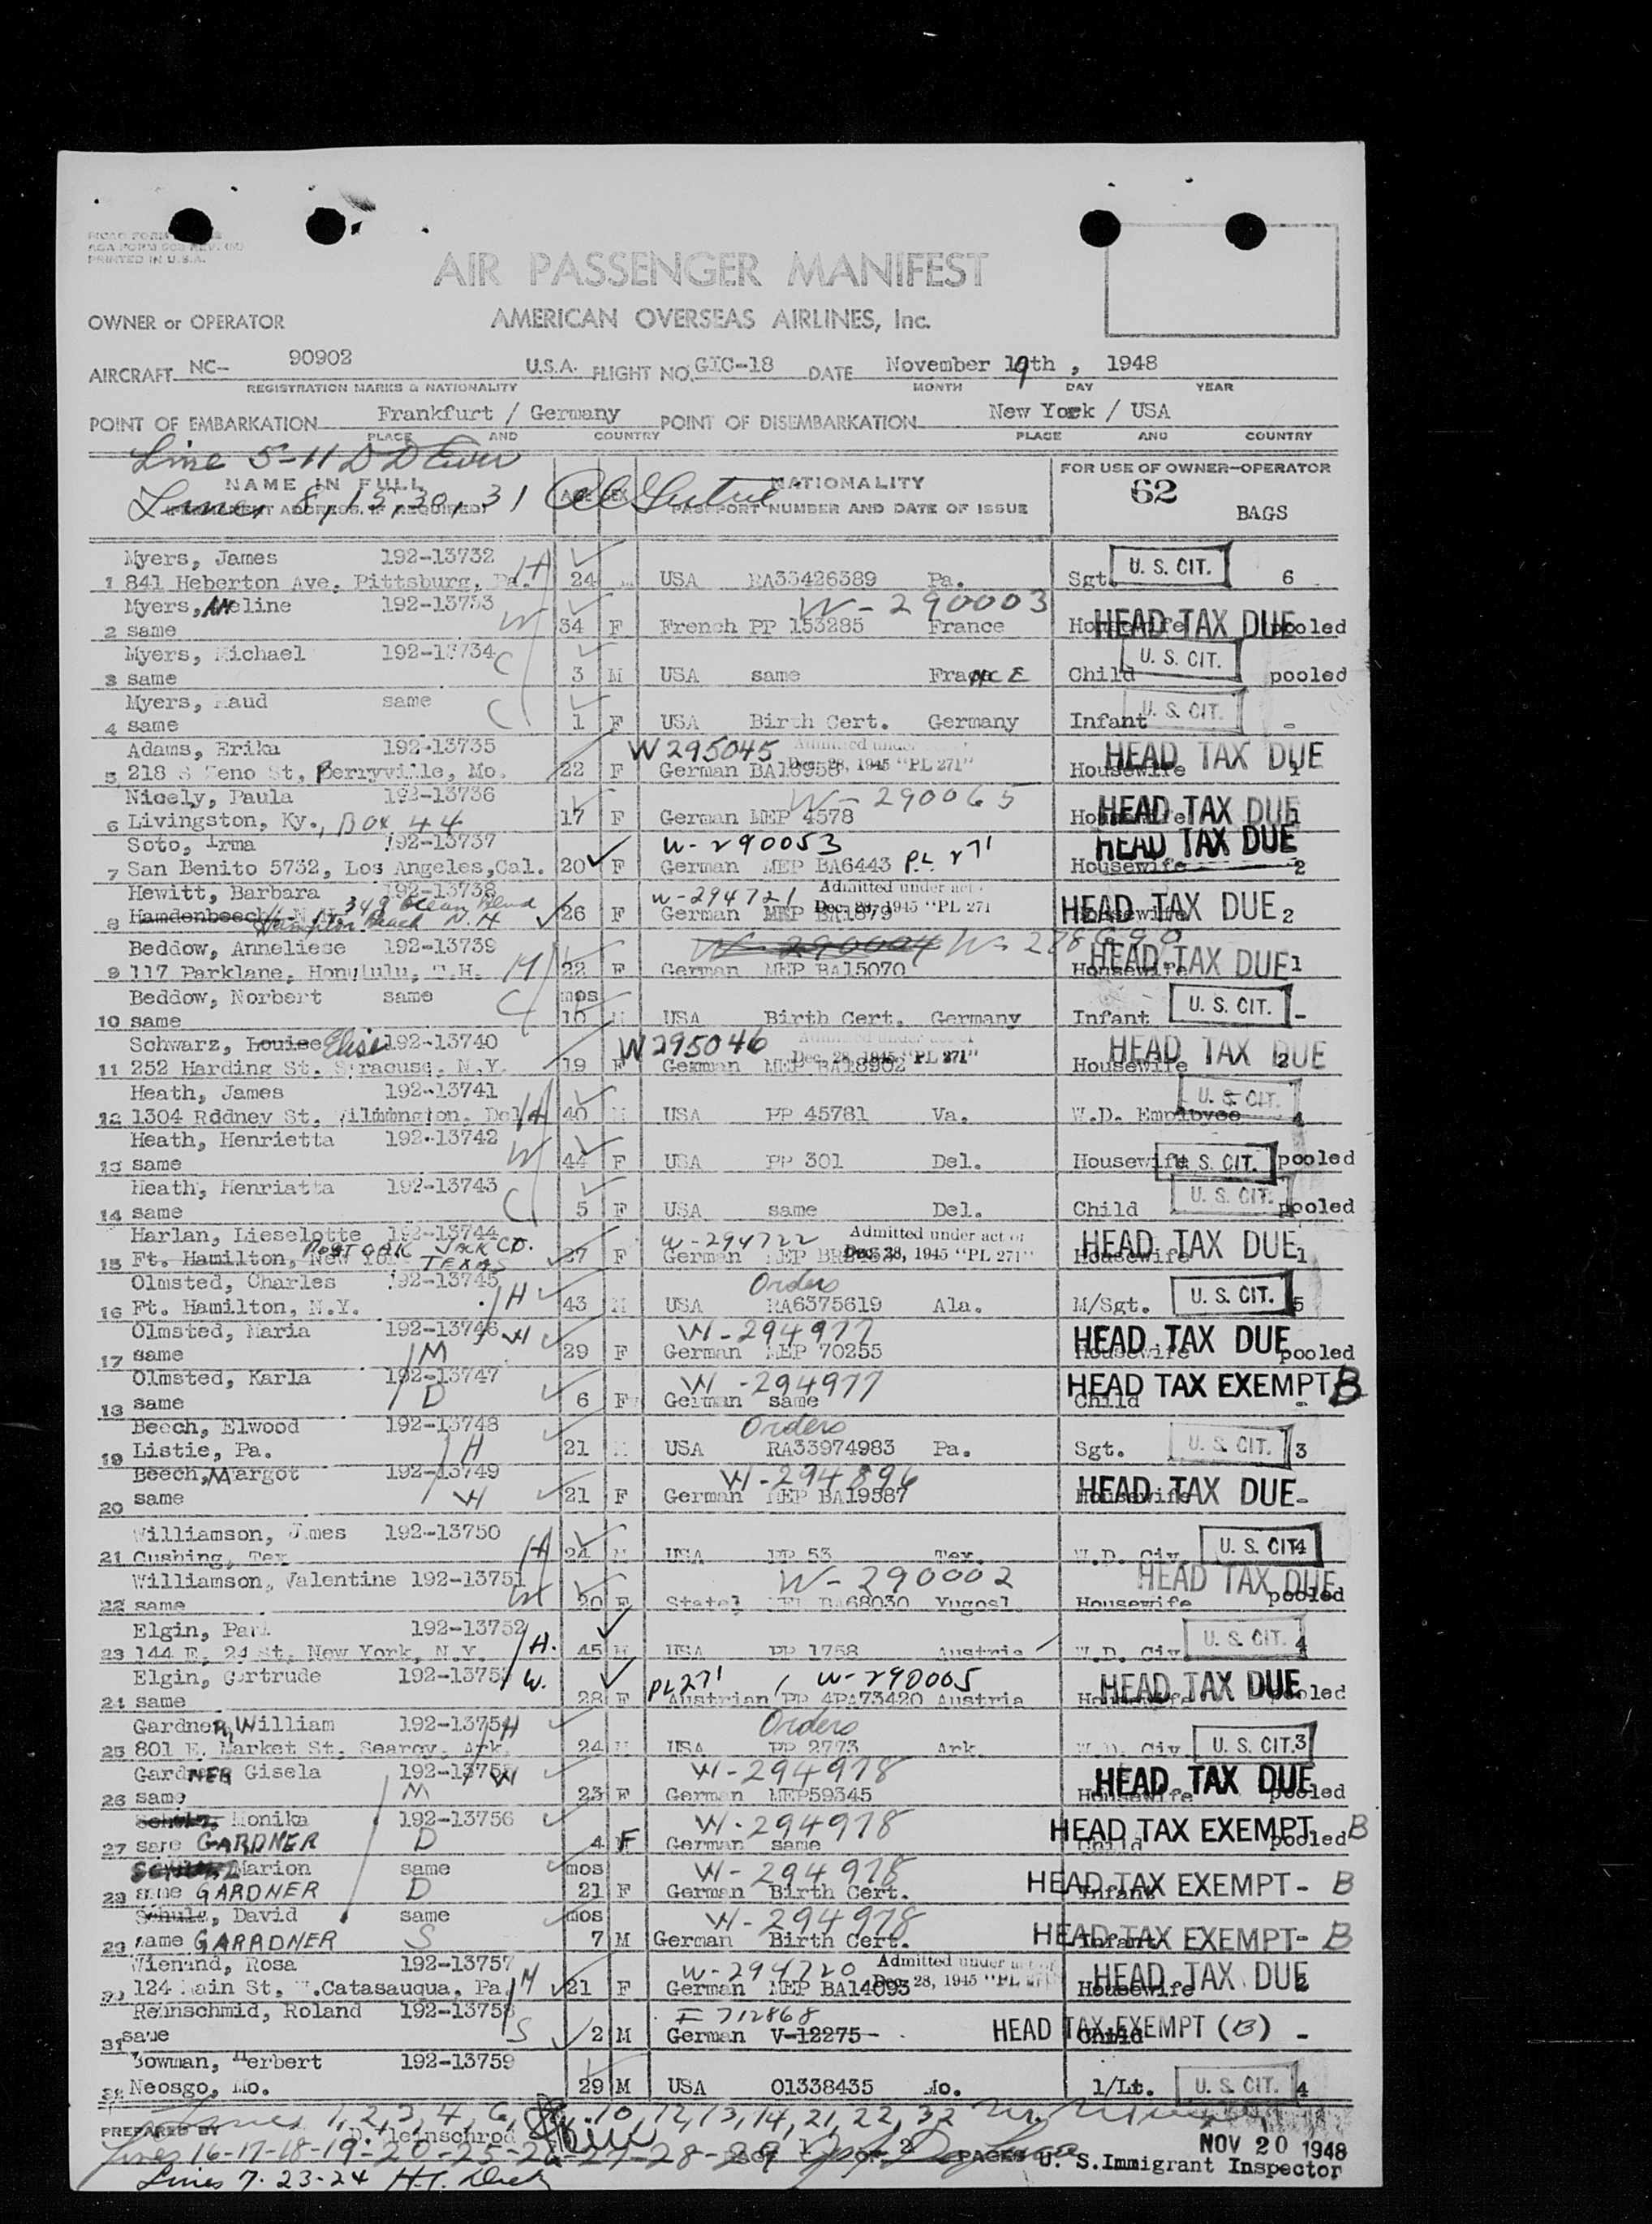 PRINTED IN U.S.A.
AIR PASSENGER MANIFEST
OWNER or OPERATOR AMERICAN OVERSEAS AIRLINES, Inc.
AIRCRAFT NC- 90902 U.S.A. FLIGHT NO. GIC-18 DATE November 19th, 1948
REGISTRATION MARKS & NATIONALITY MONTH DAY YEAR
POINT OF EMBARKATION Frankfurt / Germany POINT OF DISEMBARKATION New York / USA
PLACE AND COUNTRY PLACE AND COUNTRY
Line 5-11
NAME IN FULL NATIONALITY FOR USE OF OWNER-OPERATOR
Lines 8, 15, 30, 31 PASSPORT NUMBER AND DATE OF ISSUE 62 BAGS
Myers, James 192-13732 H U. S. CIT.
1 841 Heberton Ave, Pittsburg, Pa. 24 M USA RA33426389 Pa. Sgt. 6
Myers, ANeline 192-13733 W W-290003 HEAD TAX DUE
2 same 34 F French PP 153285 France Housewife pooled
Myers, Michael 192-13734 C U. S. CIT.
3 same 3 M USA same FraNCE Child pooled
Myers, Maud same C U. S. CIT.
4 same 1 F USA Birth Cert. Germany Infant -
Adams, Erika 192-13735 W295045 Admitted under HEAD TAX DUE
5 218 S Zeno St, Berryville, Mo. 22 F German Dec. 28, 1945 "PL 271" Housewife 1
Nicely, Paula 192-13736 W-290065 HEAD TAX DUE
6 Livingston, Ky., BOX 44 17 F German MEP 4578 Housewife 1
Soto, Irma 192-13737 W-290053 HEAD TAX DUE
7 San Benito 5732, Los Angeles, Cal. 20 F German MEP BA6443 PL 271 Housewife 2
Hewitt, Barbara 192-13738 349 Ocean Blvd W-294721 Admitted under act HEAD TAX DUE
8 Hamdenbeech, N.H. Hampton Beach N.H 26 F German MEP BA1879 Dec. 28, 1945 "PL 271 Housewife 2
Beddow, Anneliese 192-13739 W-290004 HEAD TAX DUE
9 117 Parklane, Honolulu, T.H. M 22 F German MEP BA15070 Housewife 1
Beddow, Norbert same C mos U. S. CIT.
10 same 10 M USA Birth Cert. Germany Infant -
Schwarz, Louise Elise 192-13740 W295046 Admitted under act of HEAD TAX DUE
11 252 Harding St. Syracuse, N.Y. 19 F German MEP BA18902 Dec. 28, 1945 "PL 271" Housewife 2
Heath, James 192-13741 U. S. CIT.
12 1304 Rddney St. Wilmington, Del. H 40 M USA PP 45781 Va. W.D. Employee 4
Heath, Henrietta 192-13742 W U. S. CIT.
13 same 44 F USA PP 301 Del. Housewife pooled
Heath, Henriatta 192-13743 C U. S. CIT.
14 same 5 F USA same Del. Child pooled
Harlan, Lieselotte 192-13744 POST OAK JACK CO. W-294722 Admitted under act of HEAD TAX DUE
15 Ft. Hamilton, New York TEXAS 27 F German MEP Dec. 28, 1945 "PL 271" Housewife 1
Olmsted, Charles 192-13745 H Orders U. S. CIT.
16 Ft. Hamilton, N.Y. 43 M USA RA6375619 Ala. M/Sgt. 5
Olmsted, Maria 192-13746 W W-294977 HEAD TAX DUE
17 same M 29 F German MEP 70255 Housewife pooled
Olmsted, Karla 192-13747 W-294977 HEAD TAX EXEMPT B
18 same D 6 F German same Child -
Beech, Elwood 192-13748 Orders U. S. CIT.
19 Listie, Pa. H 21 M USA RA33974983 Pa. Sgt. 3
Beech, Margot 192-13749 W-294896 HEAD TAX DUE
20 same W 21 F German MEP BA19587 Housewife -
Williamson, James 192-13750 H U. S. CIT.
21 Cushing, Tex 24 M USA PP 53 Tex. W.D. Civ. 4
Williamson, Valentine 192-13751 W-290002 HEAD TAX DUE
22 same W 20 F Statel MEP BA68030 Yugosl. Housewife pooled
Elgin, Paul 192-13752 U. S. CIT.
23 144 E. 24 St, New York, N.Y. H. 45 M USA PP 1758 Austria W.D. Civ. 4
Elgin, Gertrude 192-13753 W. PL271 W-290005 HEAD TAX DUE
24 same 28 F Austrian PP 4PA73420 Austria Housewife pooled
GardneR, William 192-13754 H Orders
25 801 E. Market St. Searcy, Ark. 24 M USA PP 2773 Ark. W.D. Civ. U. S. CIT. 3
GardNER Gisela 192-13755 W W-294978 HEAD TAX DUE
26 same M 23 F German MEP59345 Housewife pooled
Monika 192-13756 W-294978 HEAD TAX EXEMPT B
27 same GARDNER D 4 F German same Child pooled
Marion same mos W-294978
28 same GARDNER D 21 F German Birth Cert. Infant HEAD TAX EXEMPT - B
Schulz, David same mos W-294978
29 same GARRDNER S 7 M German Birth Cert. Infant HEAD TAX EXEMPT - B
Wienand, Rosa 192-13757 W-294720 Admitted under act of HEAD TAX DUE
30 124 Main St, W.Catasauqua, Pa. M 21 F German MEP BA14093 Dec. 28, 1945 "PL 271 Housewife 2
Reinschmid, Roland 192-13758 F 712868
31 same S 2 M German V-12275 Child HEAD TAX EXEMPT (B) -
Bowman, Herbert 192-13759
32 Neosgo, Mo. 29 M USA 01338435 Mo. 1/Lt. U. S. CIT. 4
Lines 1,2,3,4,6, 10,12,13,14,21,22,32
PREPARED BY D. Kleinschrod
Lines 16-17-18-19-20-25-26-27-28-29 PAGE 1 OF 2 PAGES NOV 20 1948
U. S. Immigrant Inspector
Lines 7-23-24